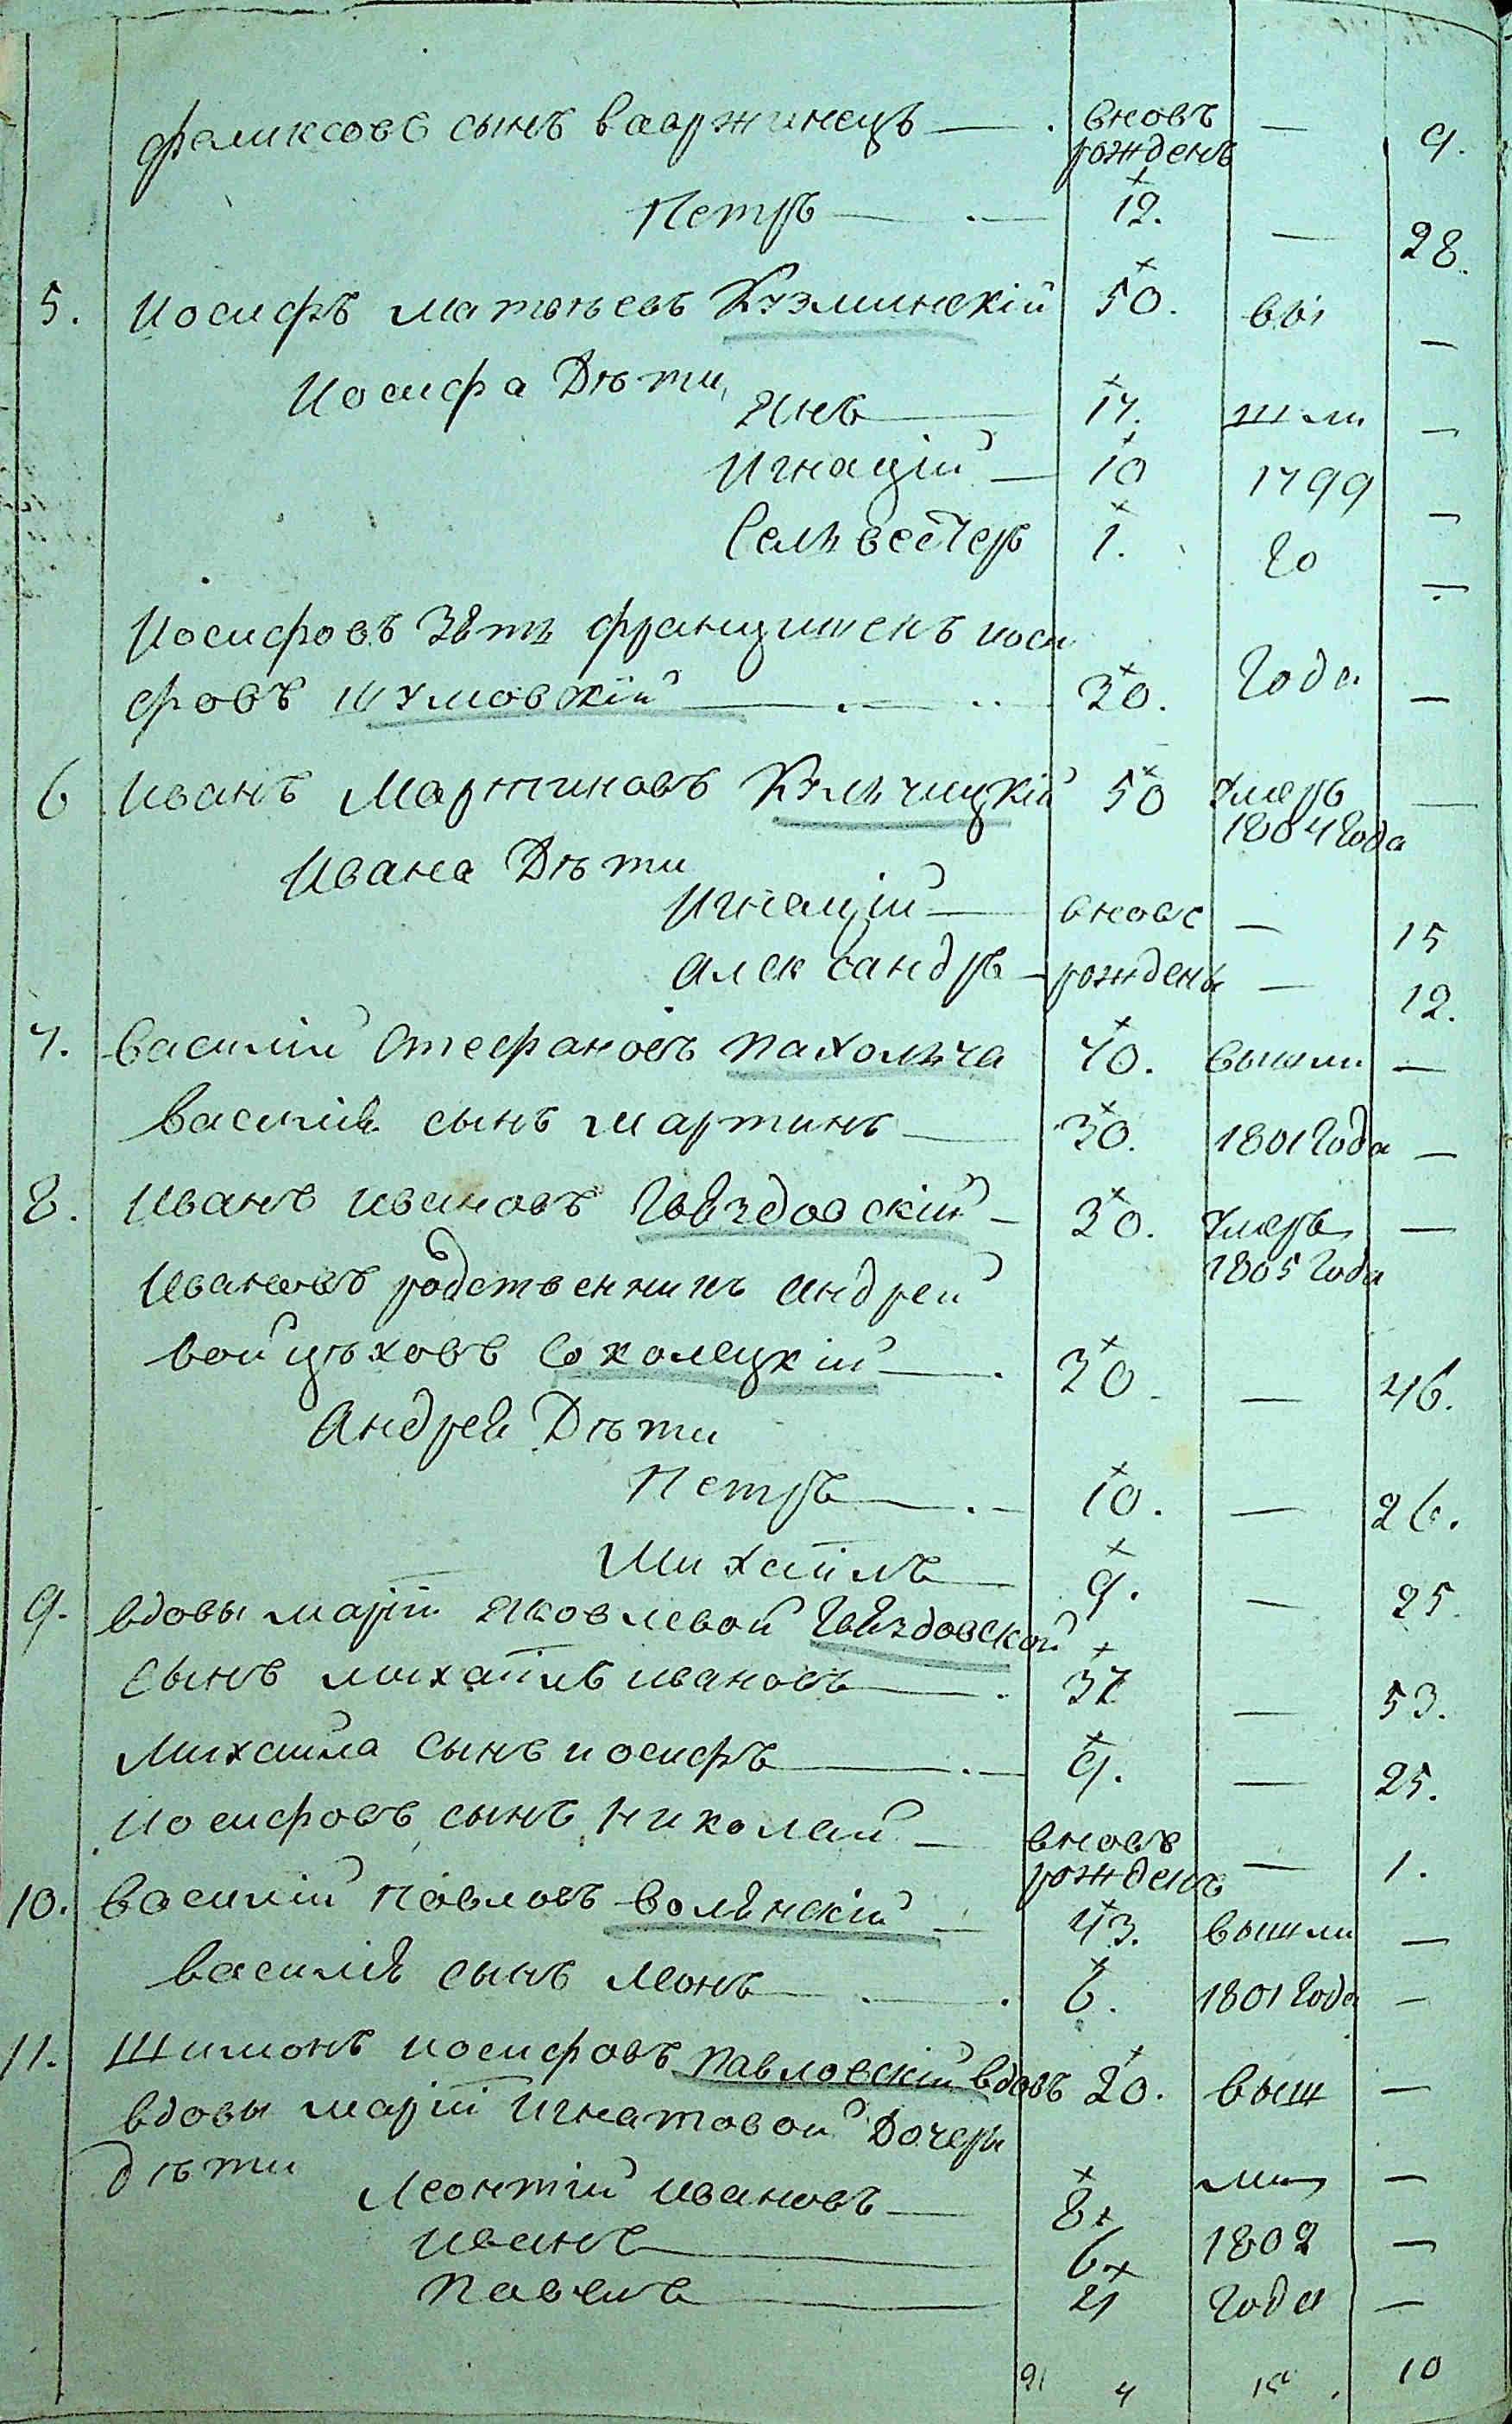 Феликсовъ сынъ ваоржинецъ — вновь рожденъ — 9.
Петръ — 12. — 28.
5. Иосифъ матвѣевъ Кузминскій 50. вы —
Иосифа Дѣти
Янъ — 17. шли —
Игнацій — 10 1799 —
Сельвестеръ 1. го —
Иосифовъ Зять францишекъ иоси
фовъ Шумовскій — 30. Года —
6 Иванъ Мартиновъ Кульчицкій 50 умеръ 1804 Года —
Ивана Дѣти
Игнацій — вновь — 15
александръ — рождены — 12.
7. василій Стефановъ пахольча 70. вышли —
василія сынъ мартинъ — 30. 1801 Года —
8. Иванъ ивановъ Гвѣздовскій — 30. умеръ 1805 Года —
Ивановъ родственникъ андрей
войцѣховъ Соколецкій — 30 — 46.
Андрея Дѣти
Петръ — 10. — 26.
Михаилъ — 9. — 25.
9. вдовы маріи яковлевой Гвѣздовской
сынъ михаилъ ивановъ — 37 — 53.
Михаила сынъ иосифъ — 9. — 25.
Иосифовъ сынъ николай — вновь рожденъ — 1.
10. василій павловъ волянскій — 43. вышли —
василія сынъ леонъ — 6. 1801 Года —
11. Шимонъ иосифовъ павловскій вдовъ 20. выш —
вдовы маріи игнатовой Дочери
дѣти
Леонтій ивановъ — 8 ли —
иванъ — 6 1802 —
павелъ — 4 Года —
21 4 10